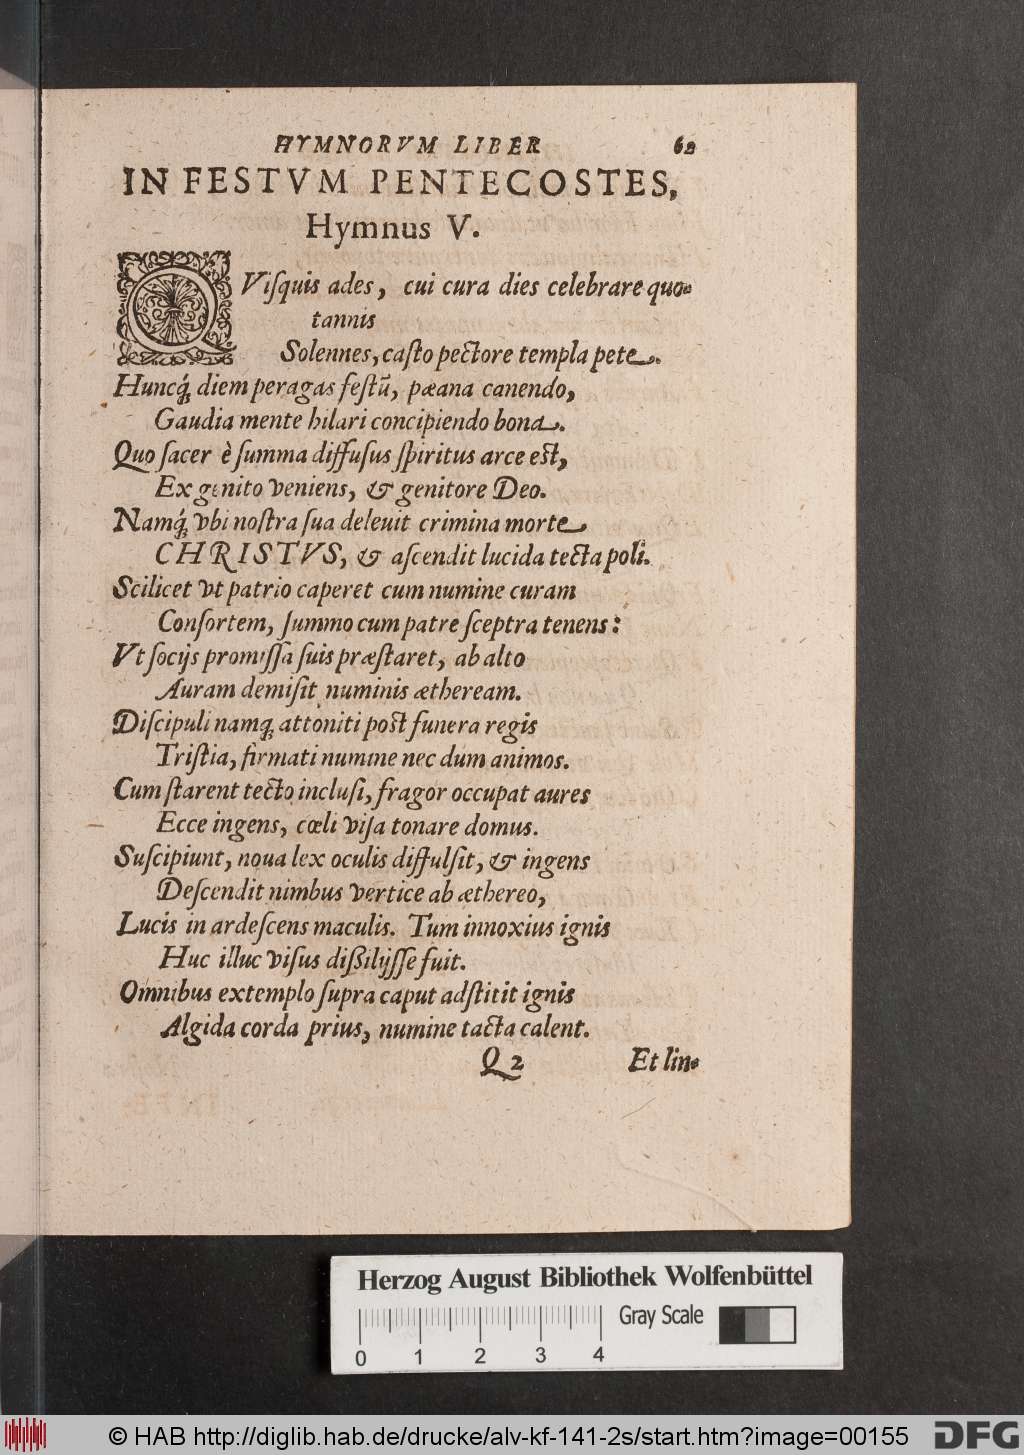 HYMNORVM LIBER 62
IN FESTVM PENTECOSTES,
Hymnus V.
QViſquis ades, cui cura dies celebrare quo-
tannis
Solennes, caſto pectore templa pete.
Huncq́; diem peragas feſtū, pæana canendo,
Gaudia mente hilari concipiendo bona.
Quo ſacer è ſumma diffuſus ſpiritus arce est,
Ex genito veniens, & genitore Deo.
Namq́; vbi noſtra ſua deleuit crimina morte
CHRISTVS, & aſcendit lucida tecta poli.
Scilicet vt patrio caperet cum numine curam
Conſortem, ſummo cum patre ſceptra tenens:
Vt ſocijs promiſſa ſuis præſtaret, ab alto
Auram demiſit numinis ætheream.
Diſcipuli namq; attoniti post funera regis
Triſtia, firmati numine nec dum animos.
Cum ſtarent tecto incluſi, fragor occupat aures
Ecce ingens, cœli viſa tonare domus.
Suſcipiunt, noua lex oculis diffulſit, & ingens
Deſcendit nimbus vertice ab æthereo,
Lucis in ardeſcens maculis. Tum innoxius ignis
Huc illuc viſus dißilijſſe fuit.
Omnibus extemplo ſupra caput adſtitit ignis
Algida corda prius, numine tacta calent.
Q 2 Et lin-
Herzog August Bibliothek Wolfenbüttel
Gray Scale
0 1 2 3 4
© HAB http://diglib.hab.de/drucke/alv-kf-141-2s/start.htm?image=00155
DFG